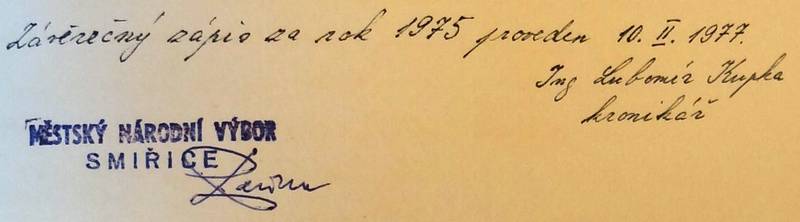 Závěrečný zápis za rok 1975 proveden 10. II. 1977.
Ing Lubomír Kupka
kronikář
MĚSTSKÝ NÁRODNÍ VÝBOR
SMIŘICE